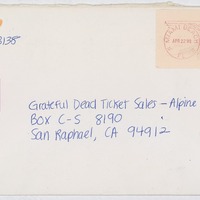 3138
Grateful Dead Ticket Sales - Alpine
Box C-S 8190
San Raphael, CA 94912